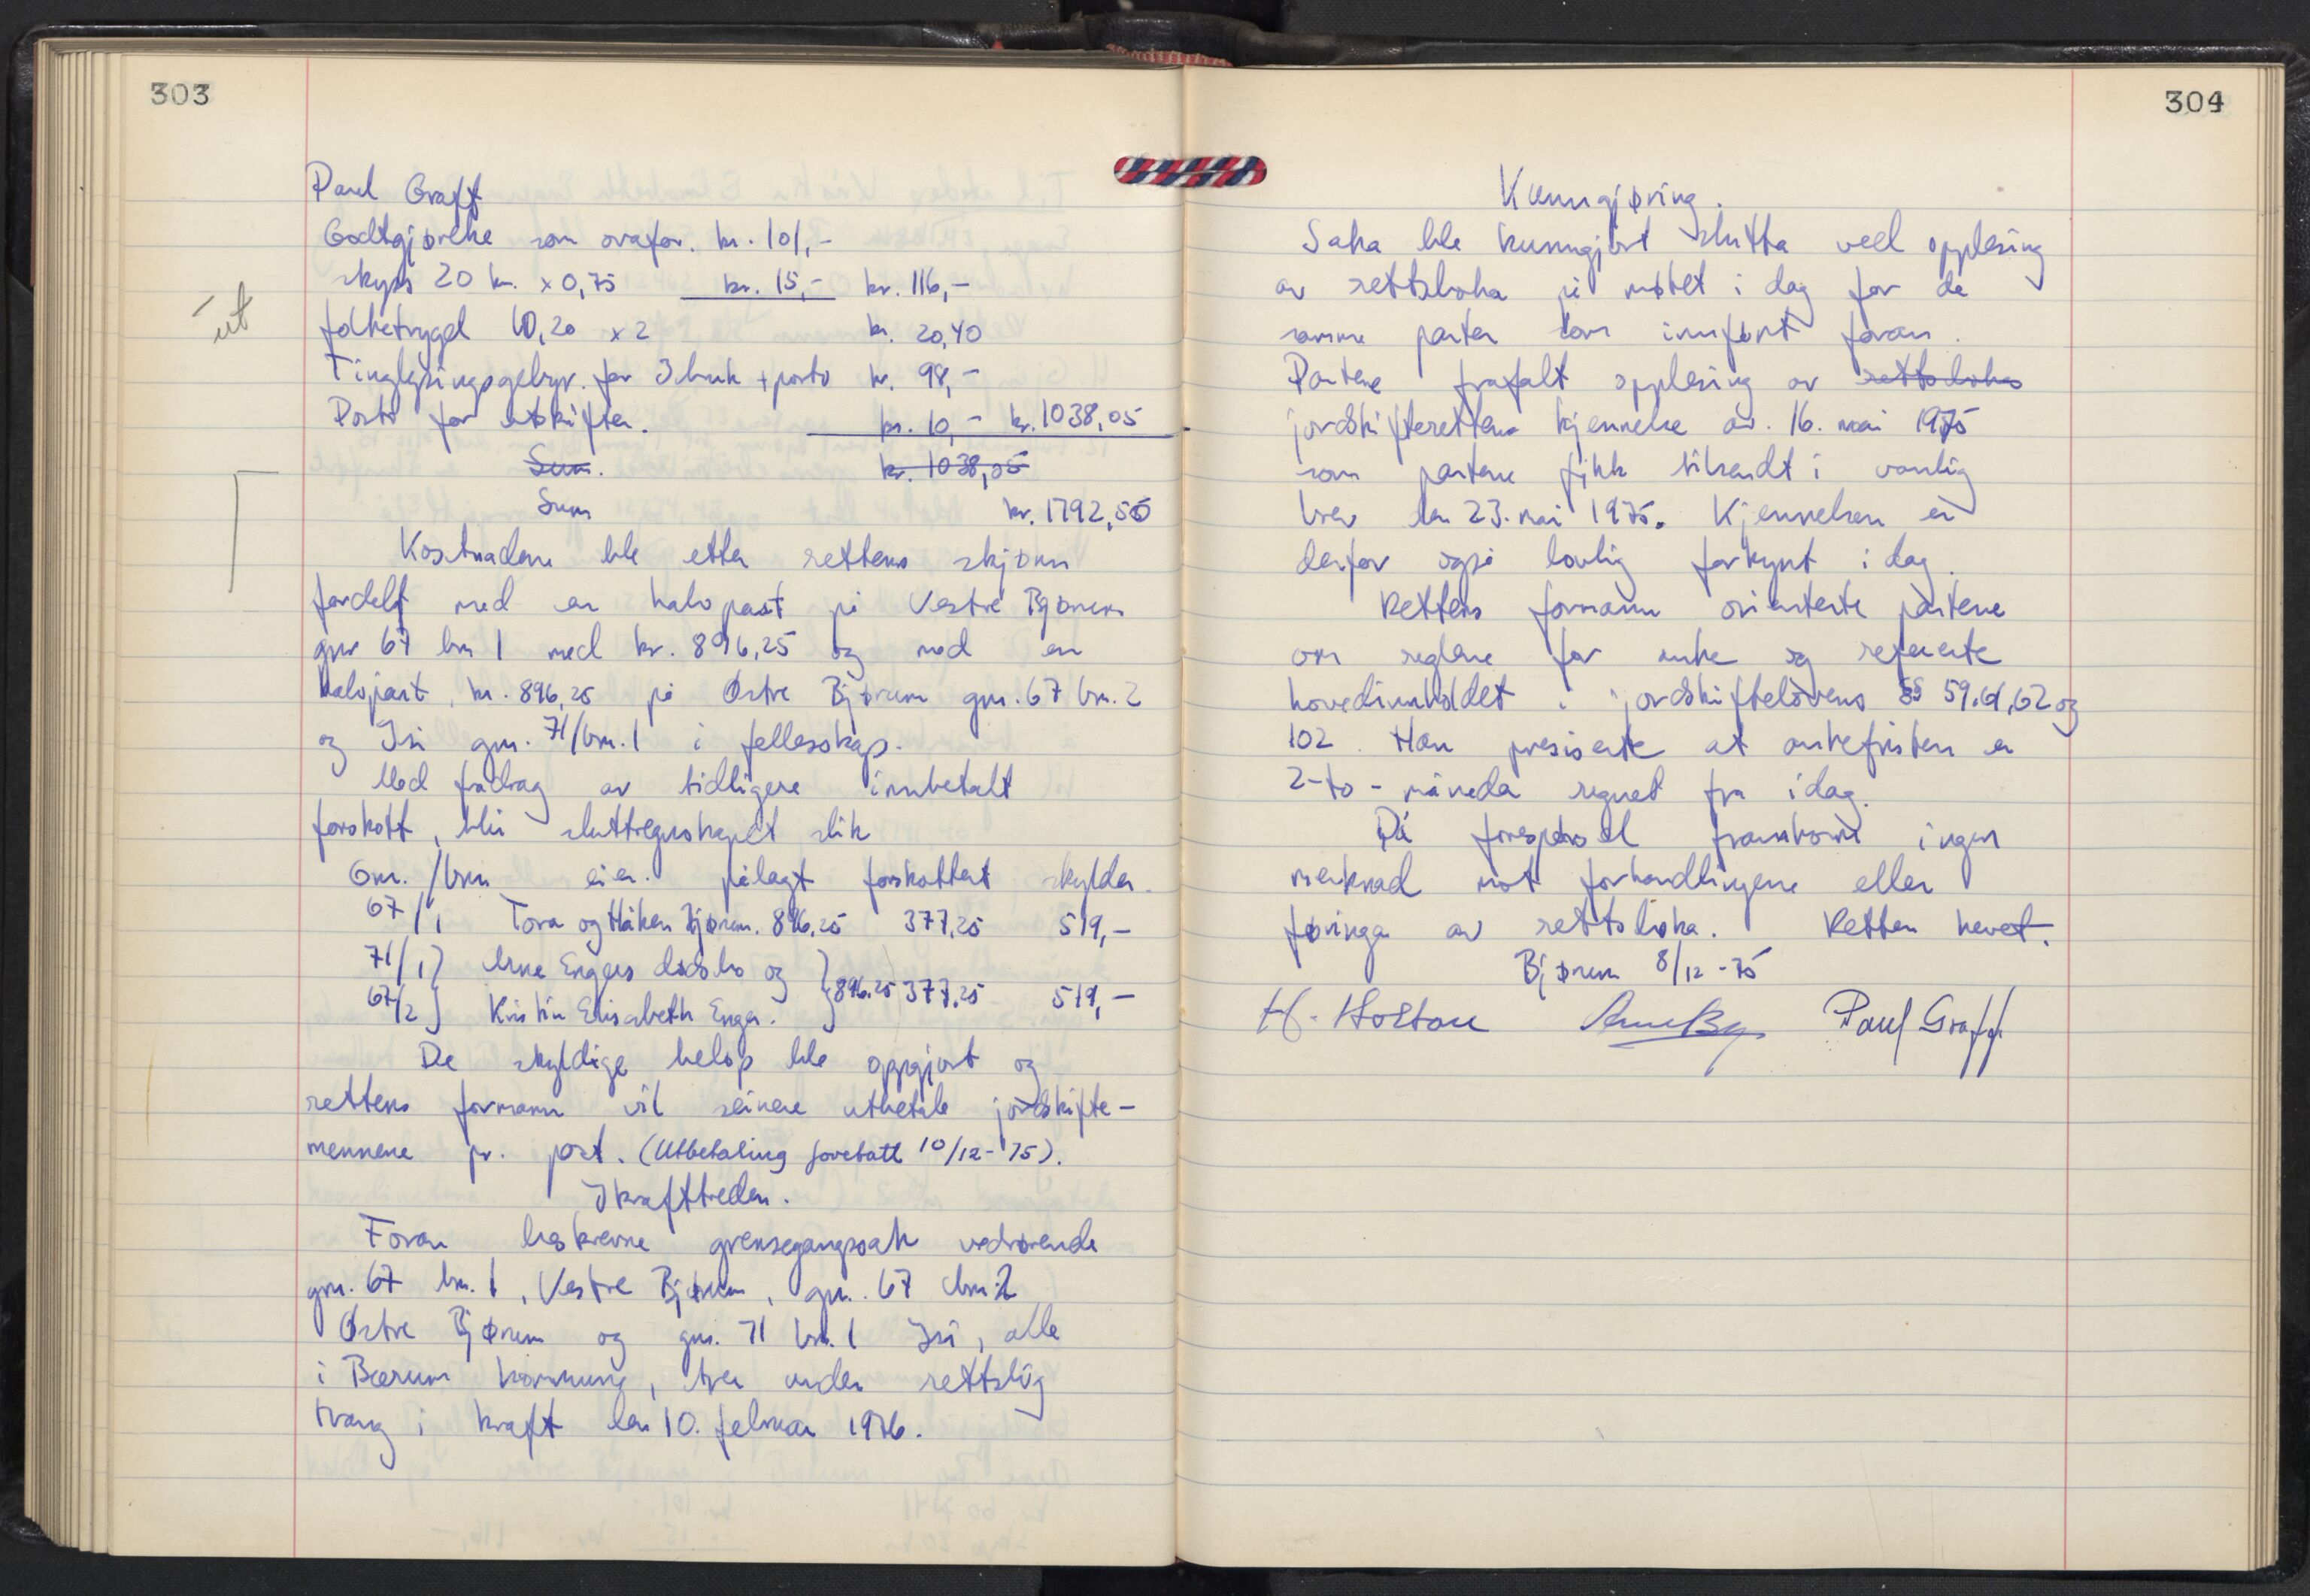 303
Paul Graff
Godtgjørelse som ovafor. kr. 101,-
skyss 20 km. x 0,75 kr. 15,- kr. 116,-
ut
folketrygd 10,20 x 2 kr. 20,40
Tinglysingsgebyr. for 3 bruk + porto kr. 98,-
Porto for utskifter. kr. 10,- kr. 1038,05
Sum. kr. 1038,05
Sum kr. 1792,50
Kostnadene ble etter rettens skjønn
fordelt med en halvpart på Vestre Bjørum
gnr 67 bnr 1 med kr. 896,25 og med en
halvpart, kr. 896,25 på Østre Bjørum gnr. 67 bnr. 2
og Isi gnr. 71/bnr. 1 i fellesskap.
Med fradrag av tidligere innbetalt
forskott, blir sluttregnskapet slik
Gnr./bnr. eier. pålagt forskottert skylder.
67/1 Tora og Håken Bjørum. 896,25 377,25 519,-
71/1 } Arne Engers dødsbo og
67/2 } Kristin Elisabeth Enger. } 896.25 377.25 519,-
De skyldige beløp ble oppgjort og
rettens formann vil seinere utbetale jordskifte-
mennene pr. post. (Utbetaling foretatt 10/12-75).
Ikrafttreden.
Foran beskrevne grensegangssak vedrørende
gnr. 67 bnr. 1, Vestre Bjørum, gnr. 67 bnr. 2
Østre Bjørum og gnr. 71 bnr. 1 Isi, alle
i Bærum kommune, trer under rettslig
tvang i kraft den 10. februar 1976.
304
Kunngjøring.
Saka ble kunngjort slutta ved opplesing
av rettsboka på møtet i dag for de
samme parter som innført foran.
Partene frafalt opplesing av rettsboka
jordskifterettens kjennelse av. 16. mai 1975
som partene fikk tilsendt i vanlig
brev den 23. mai 1975. Kjennelsen er
derfor også lovlig forkynt i dag.
Rettens formann orienterte partene
om reglene for anke og refererte
hovedinnholdet i jordskiftelovens §§ 59, 61, 62 og
102. Han presiserte at ankefristen er
2-to-måneder regnet fra idag.
På forespørsel framkom ingen
merknad mot forhandlingene eller
føringa av rettsboka. Retten hevet.
Bjørum 8/12-75
H. Holtan Paul Graff